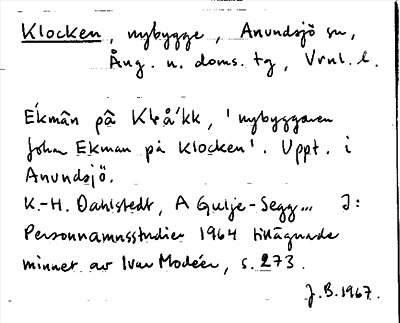 Klocken, nybygge, Anundsjö sn,
Ång. n. doms. tg, Vrnl. l.
Ékmân pâ Klɐå´kk, 'nybyggaren
Johan Ekman på Klocken'. Uppt. i
Anundsjö.
K.-H. Dahlstedt, A Gulje-Segg... I:
Personnamnsstudier 1964 tillägnade
minnet av Ivar Modéer, s. 273.
J.B. 1967.